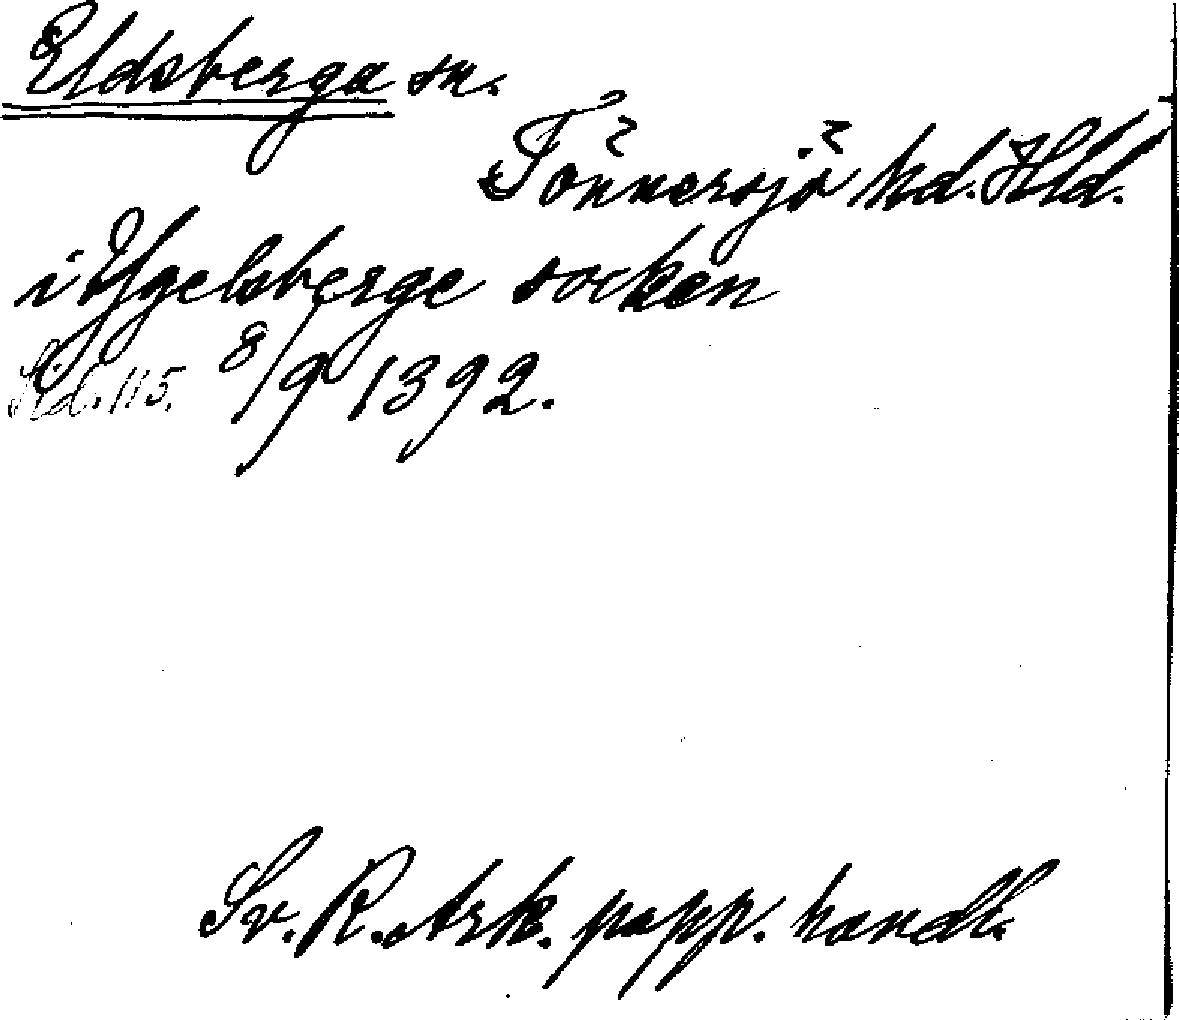 Eldsberga sn.
Tönnersjö hd. Hld.
i Ygelsberge socken
Sid. 115. 8/9 1392.
Sv. R. Ark. papp. handl.